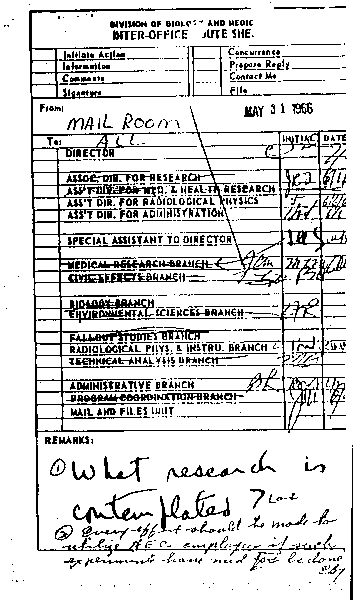 DIVISION OF BIOLOGY AND MEDIC
INTER-OFFICE OUTE SHE.
Initiate Action
Concurrence
Information
Prepare Reply
Comments
Contact Me
Signature
File
From:
MAY 31 1966
MAIL ROOM
To: ALL
INITIAL DATE
DIRECTOR
ASSOC. DIR. FOR RESEARCH
ASS'T DIR. FOR MED. & HEALTH RESEARCH
ASS'T DIR. FOR RADIOLOGICAL PHYSICS
ASS'T DIR. FOR ADMINISTRATION
SPECIAL ASSISTANT TO DIRECTOR
MEDICAL RESEARCH BRANCH
CIVIL EFFECTS BRANCH
BIOLOGY BRANCH
ENVIRONMENTAL SCIENCES BRANCH
FALLOUT STUDIES BRANCH
RADIOLOGICAL PHYS. & INSTRU. BRANCH
TECHNICAL ANALYSIS BRANCH
ADMINISTRATIVE BRANCH
PROGRAM COORDINATION BRANCH
MAIL AND FILES UNIT
REMARKS:
① What research is
contemplated ?
② Every effort should be made to
utilize AEC employees if such
experiments have need for be done